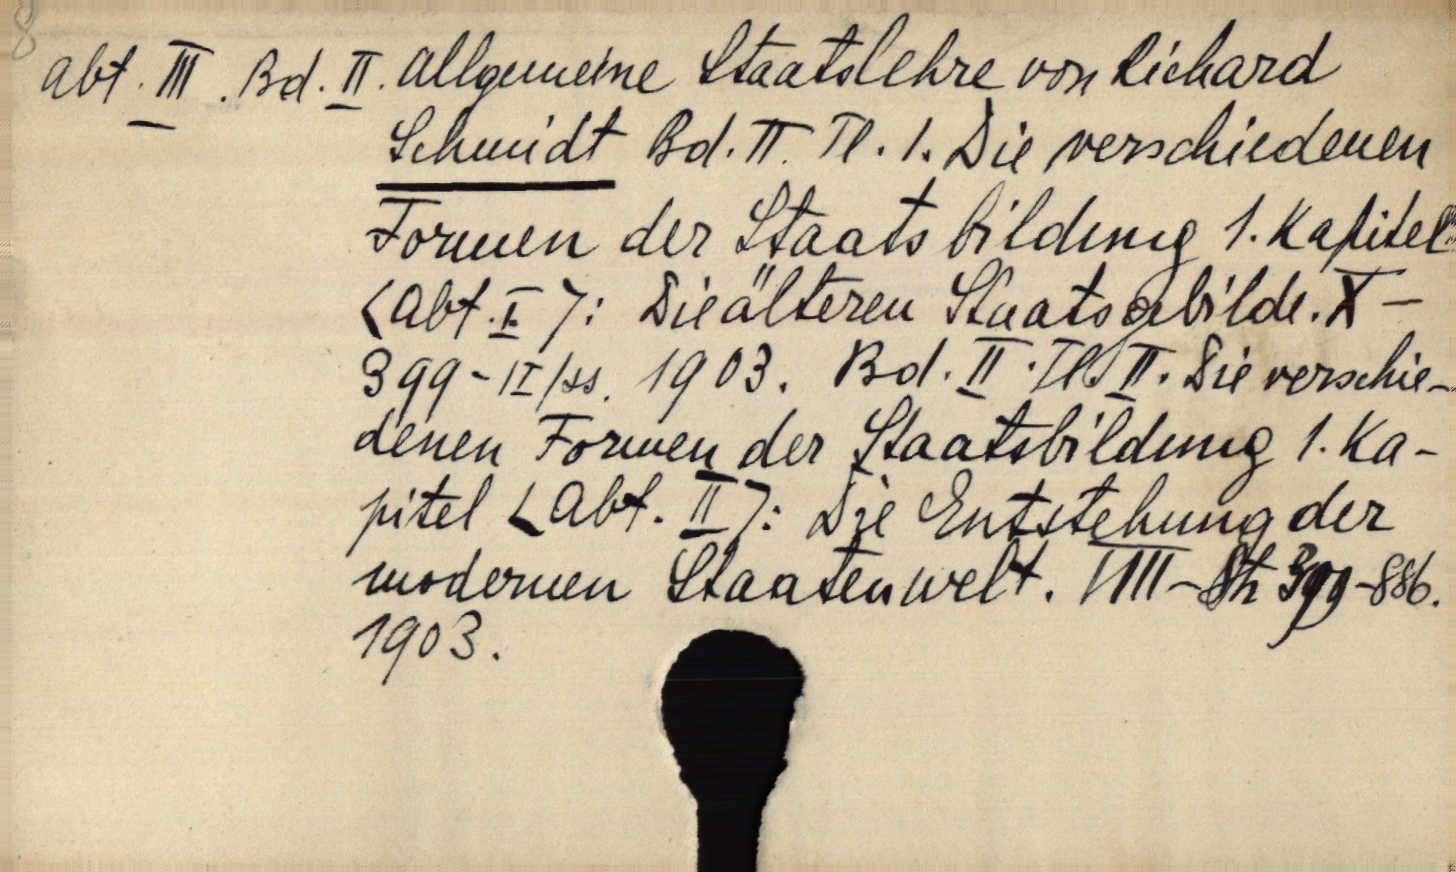 8
Abt. III. Bd. II. Allgemeine Staatslehre von Richard
Schmidt Bd. II. Tl. 1. Die verschiedenen
Formen der Staatsbildung 1. Kapitel
<Abt. I>: Die älteren Staatsgbilde. X –
399 - II/ss. 1903. Bd. II. Tl. II. Die verschie-
denen Formen der Staatsbildung 1. Ka-
pitel <Abt. II>: Die Entstehung der
modernen Staatenwelt. VIII – 399 - 886.
1903.